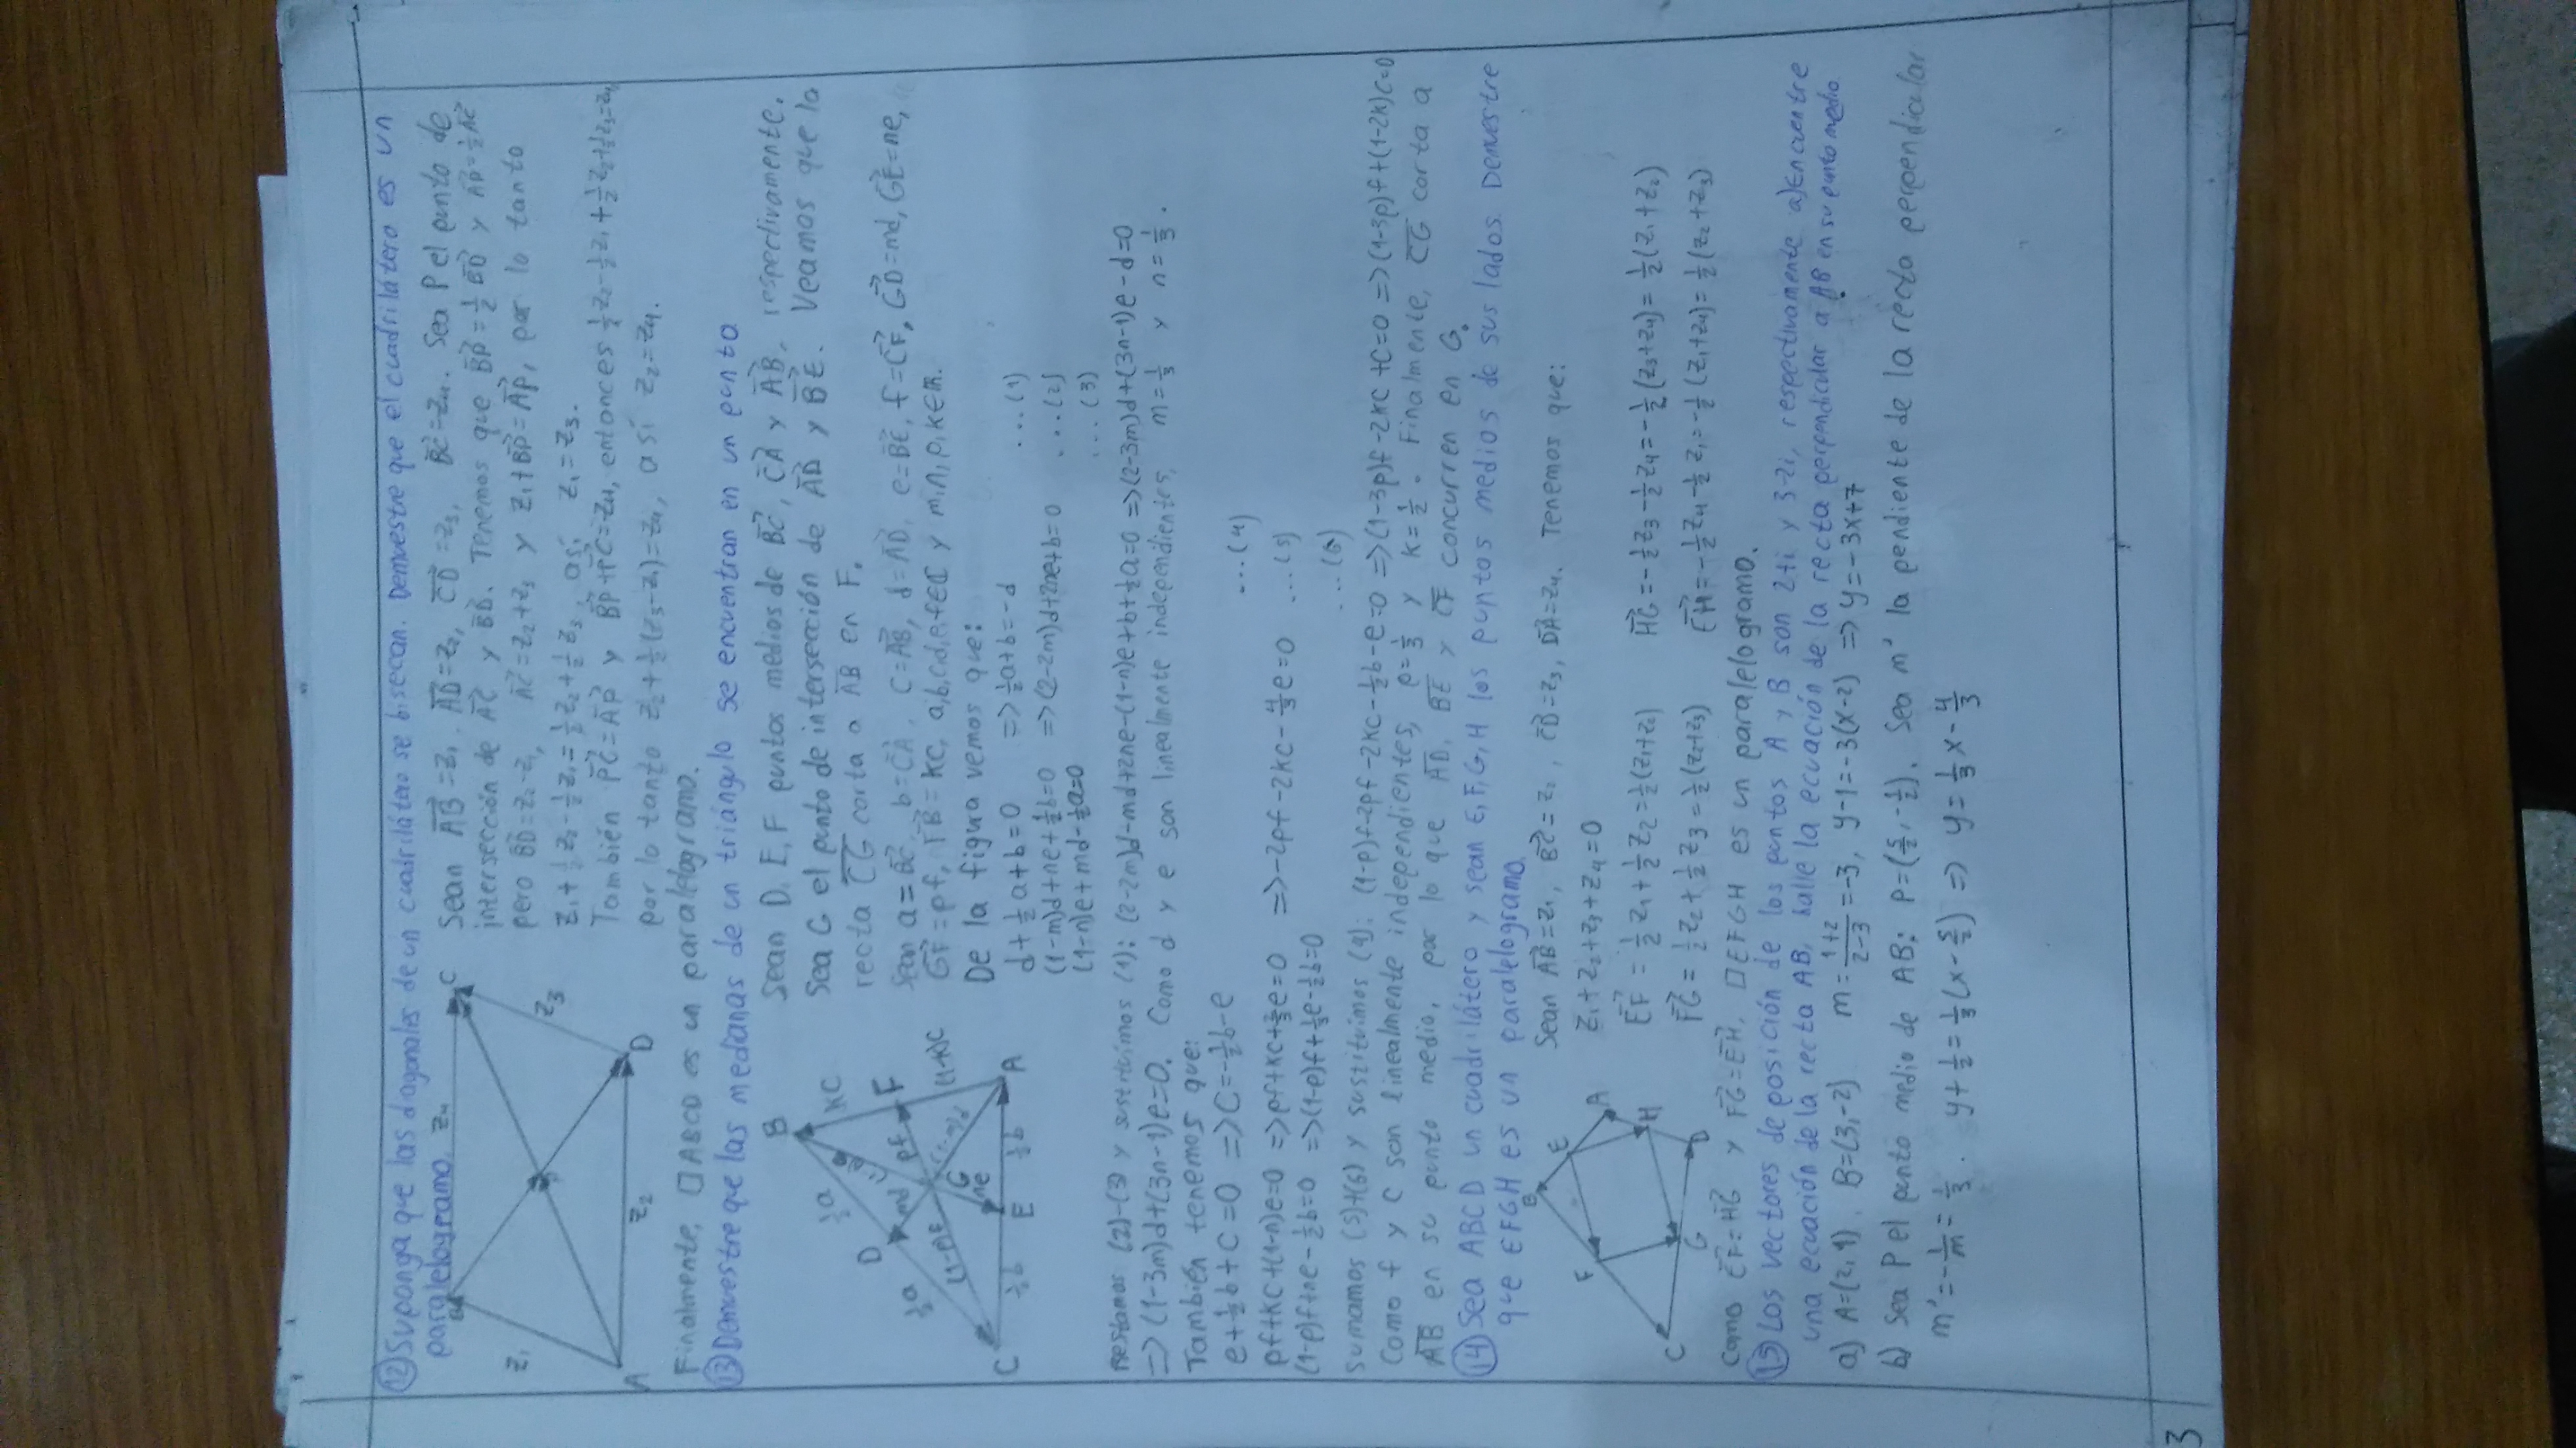 ⑫ Suponga que las diagonales de un cuadrilátero se bisecan. Demuestre que el cuadrilátero es un
paralelogramo.
B z₄ C
z₁ z₃
P
A z₂ D
Sean AB⃗=z₁, AD⃗=z₂, CD⃗=z₃, BC⃗=z₄. Sea P el punto de
intersección de AC⃗ y BD⃗. Tenemos que BP⃗=½BD⃗ y AP⃗=½AC⃗
pero BD⃗=z₂-z₁, AC⃗=z₂+z₃ y z₁+BP⃗=AP⃗, por lo tanto
z₁+½z₂-½z₁=½z₂+½z₃, así z₁=z₃.
También PC⃗=AP⃗ y BP⃗+PC⃗=z₄, entonces ½z₂-½z₁+½z₂+½z₃=z₄
por lo tanto z₂+½(z₃-z₁)=z₄, así z₂=z₄.
Finalmente, □ABCD es un paralelogramo.
⑬ Demuestre que las medianas de un triángulo se encuentran en un punto
B
½a kc
D (1-n)e
½a md pf F
(1-p)f G (1-m)d (1-k)c
ne
C ½b E ½b A
Sean D, E, F puntos medios de BC⃗, CA⃗ y AB⃗, respectivamente.
Sea G el punto de intersección de AD⃗ y BE⃗. Veamos que la
recta CG corta a AB en F.
Sean a=BC⃗, b=CA⃗, c=AB⃗, d=AD⃗, e=BE⃗, f=CF⃗, GD⃗=md, GE⃗=ne,
GF⃗=pf, FB⃗=kc, a,b,c,d,e,f∈ℂ y m,n,p,k∈ℝ.
De la figura vemos que:
d+½a+b=0 =>½a+b=-d ...(1)
(1-m)d+ne+½b=0 =>(2-2m)d+2ne+b=0 ...(2)
(1-n)e+md-½a=0 ...(3)
Restamos (2)-(3) y sustituimos (1): (2-2m)d-md+2ne-(1-n)e+b+½a=0 =>(2-3m)d+(3n-1)e-d=0
=>(1-3m)d+(3n-1)e=0. Como d y e son linealmente independientes, m=⅓ y n=⅓.
También tenemos que:
e+½b+c=0 =>c=-½b-e ...(4)
pf+kc+(1-n)e=0 =>pf+kc+⅔e=0 =>-2pf-2kc-4/3e=0 ...(5)
(1-p)f+ne-½b=0 =>(1-p)f+⅓e-½b=0 ...(6)
Sumamos (5)+(6) y sustituimos (4): (1-p)f-2pf-2kc-½b-e=0 =>(1-3p)f-2kc+c=0 =>(1-3p)f+(1-2k)c=0
Como f y c son linealmente independientes, p=⅓ y k=½. Finalmente, CG corta a
AB en su punto medio, por lo que AD, BE y CF concurren en G.
⑭ Sea ABCD un cuadrilátero y sean E, F, G, H los puntos medios de sus lados. Demuestre
que EFGH es un paralelogramo.
B
E
F A
H
C
G D
Sean AB⃗=z₁, BC⃗=z₂, CD⃗=z₃, DA⃗=z₄. Tenemos que:
z₁+z₂+z₃+z₄=0
EF⃗=½z₁+½z₂=½(z₁+z₂) HG⃗=-½z₃-½z₄=-½(z₃+z₄)=½(z₁+z₂)
FG⃗=½z₂+½z₃=½(z₂+z₃) EH⃗=-½z₄-½z₁=-½(z₁+z₄)=½(z₂+z₃)
Como EF⃗=HG⃗ y FG⃗=EH⃗, □EFGH es un paralelogramo.
⑮ Los vectores de posición de los puntos A y B son 2+i y 3-2i, respectivamente a) Encuentre
una ecuación de la recta AB, halle la ecuación de la recta perpendicular a AB en su punto medio
a) A=(2,1), B=(3,-2) m=(1+2)/(2-3)=-3, y-1=-3(x-2) => y=-3x+7
b) Sea P el punto medio de AB: P=(5/2,-1/2). Sea m' la pendiente de la recta perpendicular
m'=-1/m=1/3. y+1/2=1/3(x-5/2) => y=1/3x-4/3
3